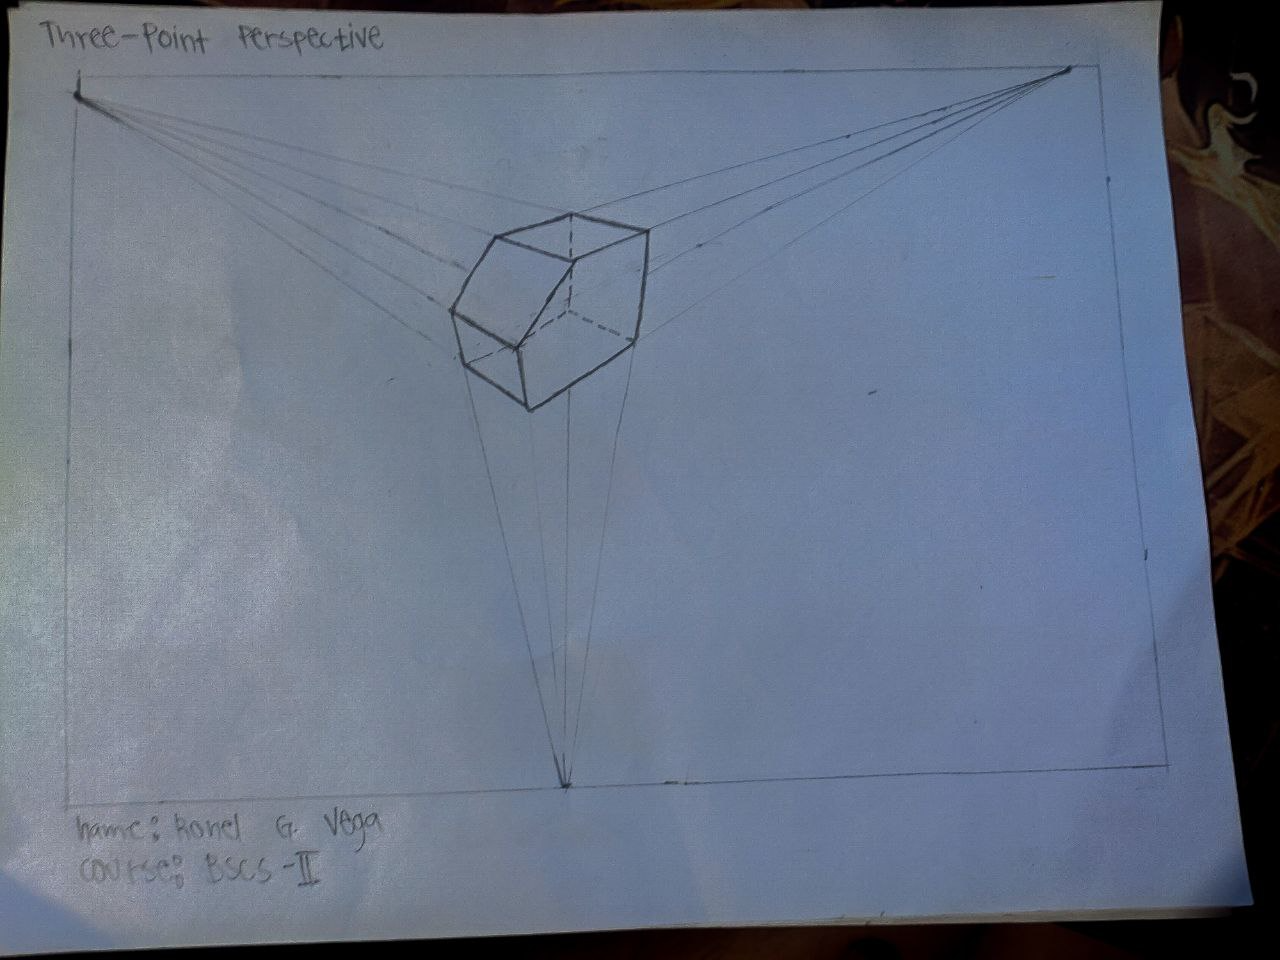 Three-Point Perspective
name: Ronel G. Vega
course: BSCS-II